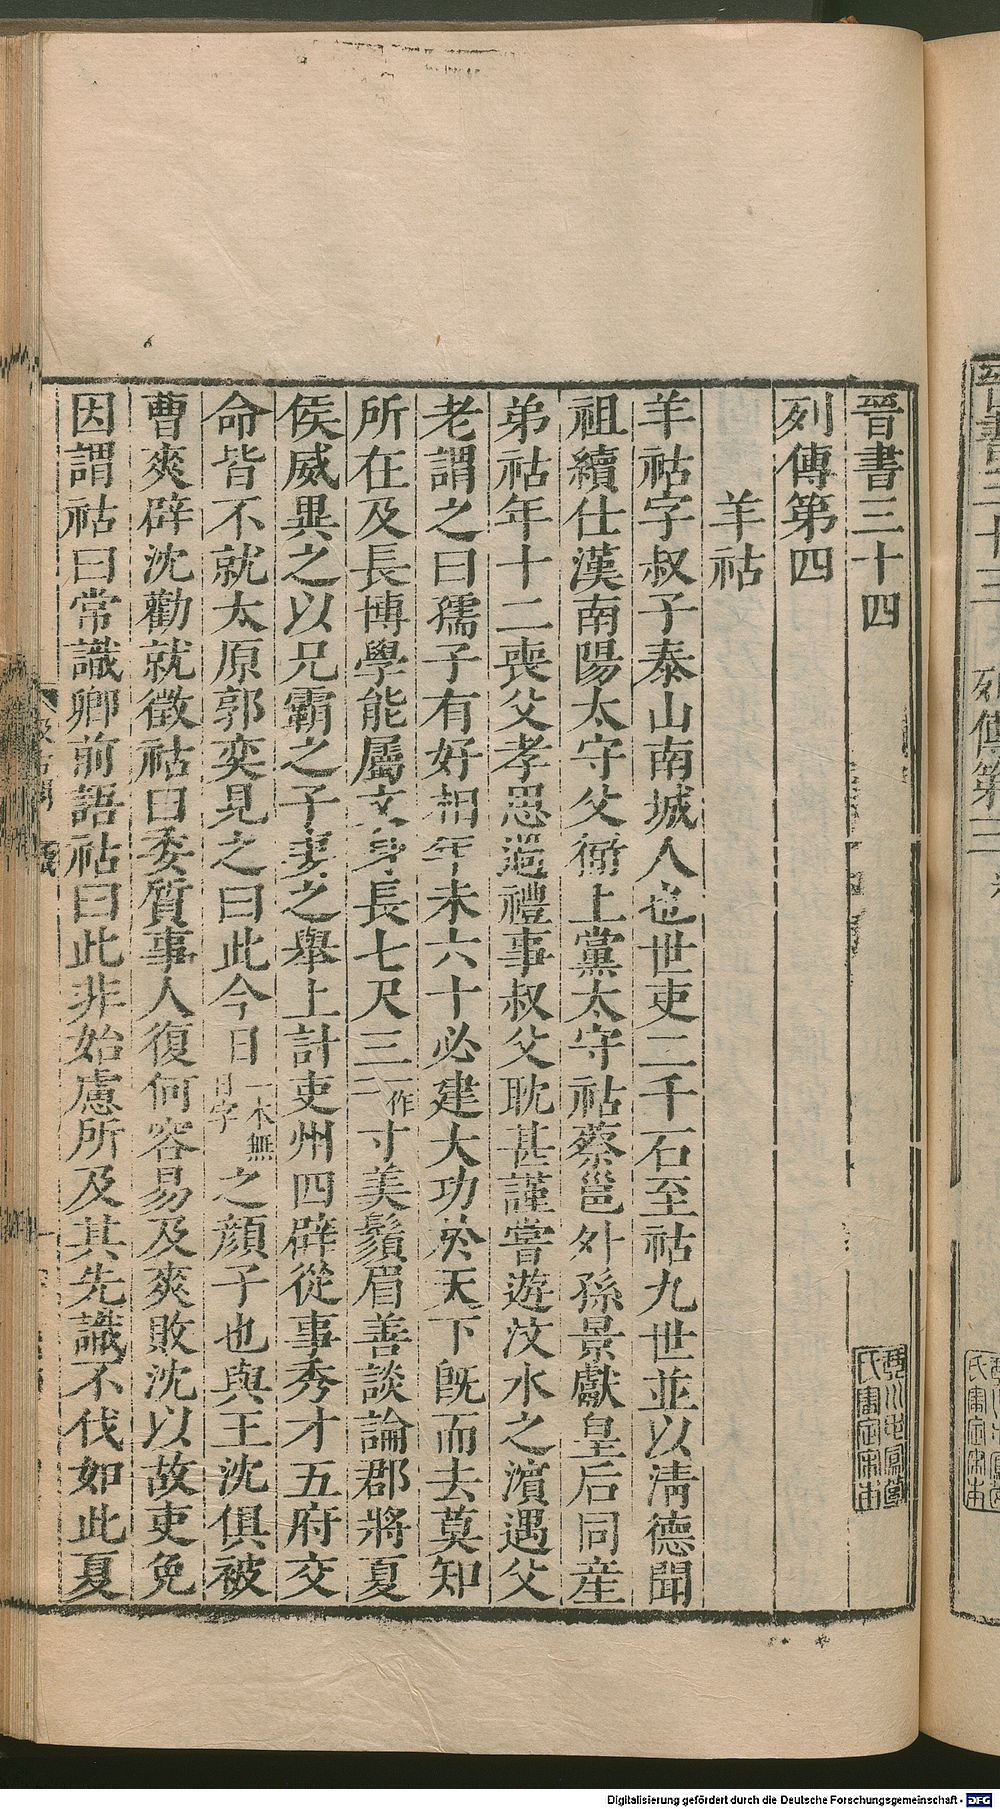 晉書三十四
列傳第四
羊祜
羊祜字叔子泰山南城人也世吏二千石至祜九世並以淸德聞
祖續仕漢南陽太守父衟上黨太守祜蔡邕外孫景獻皇后同産
弟祜年十二喪父孝思過禮事叔父耽甚謹嘗遊汶水之濱遇父
老謂之曰孺子有好相年未六十必建大功於天下旣而去莫知
所在及長博學能屬文身長七尺三一作二寸美鬚眉善談論郡將夏
侯威異之以兄霸之子妻之舉上計吏州四辟從事秀才五府交
命皆不就太原郭奕見之曰此今日一本無日字之顏子也與王沈俱被
曹爽辟沈勸就徵祜曰委質事人復何容易及爽敗沈以故吏免
因謂祜曰常識卿前語祜曰此非始慮所及其先識不伐如此夏
Digitalisierung gefördert durch die Deutsche Forschungsgemeinschaft - DFG